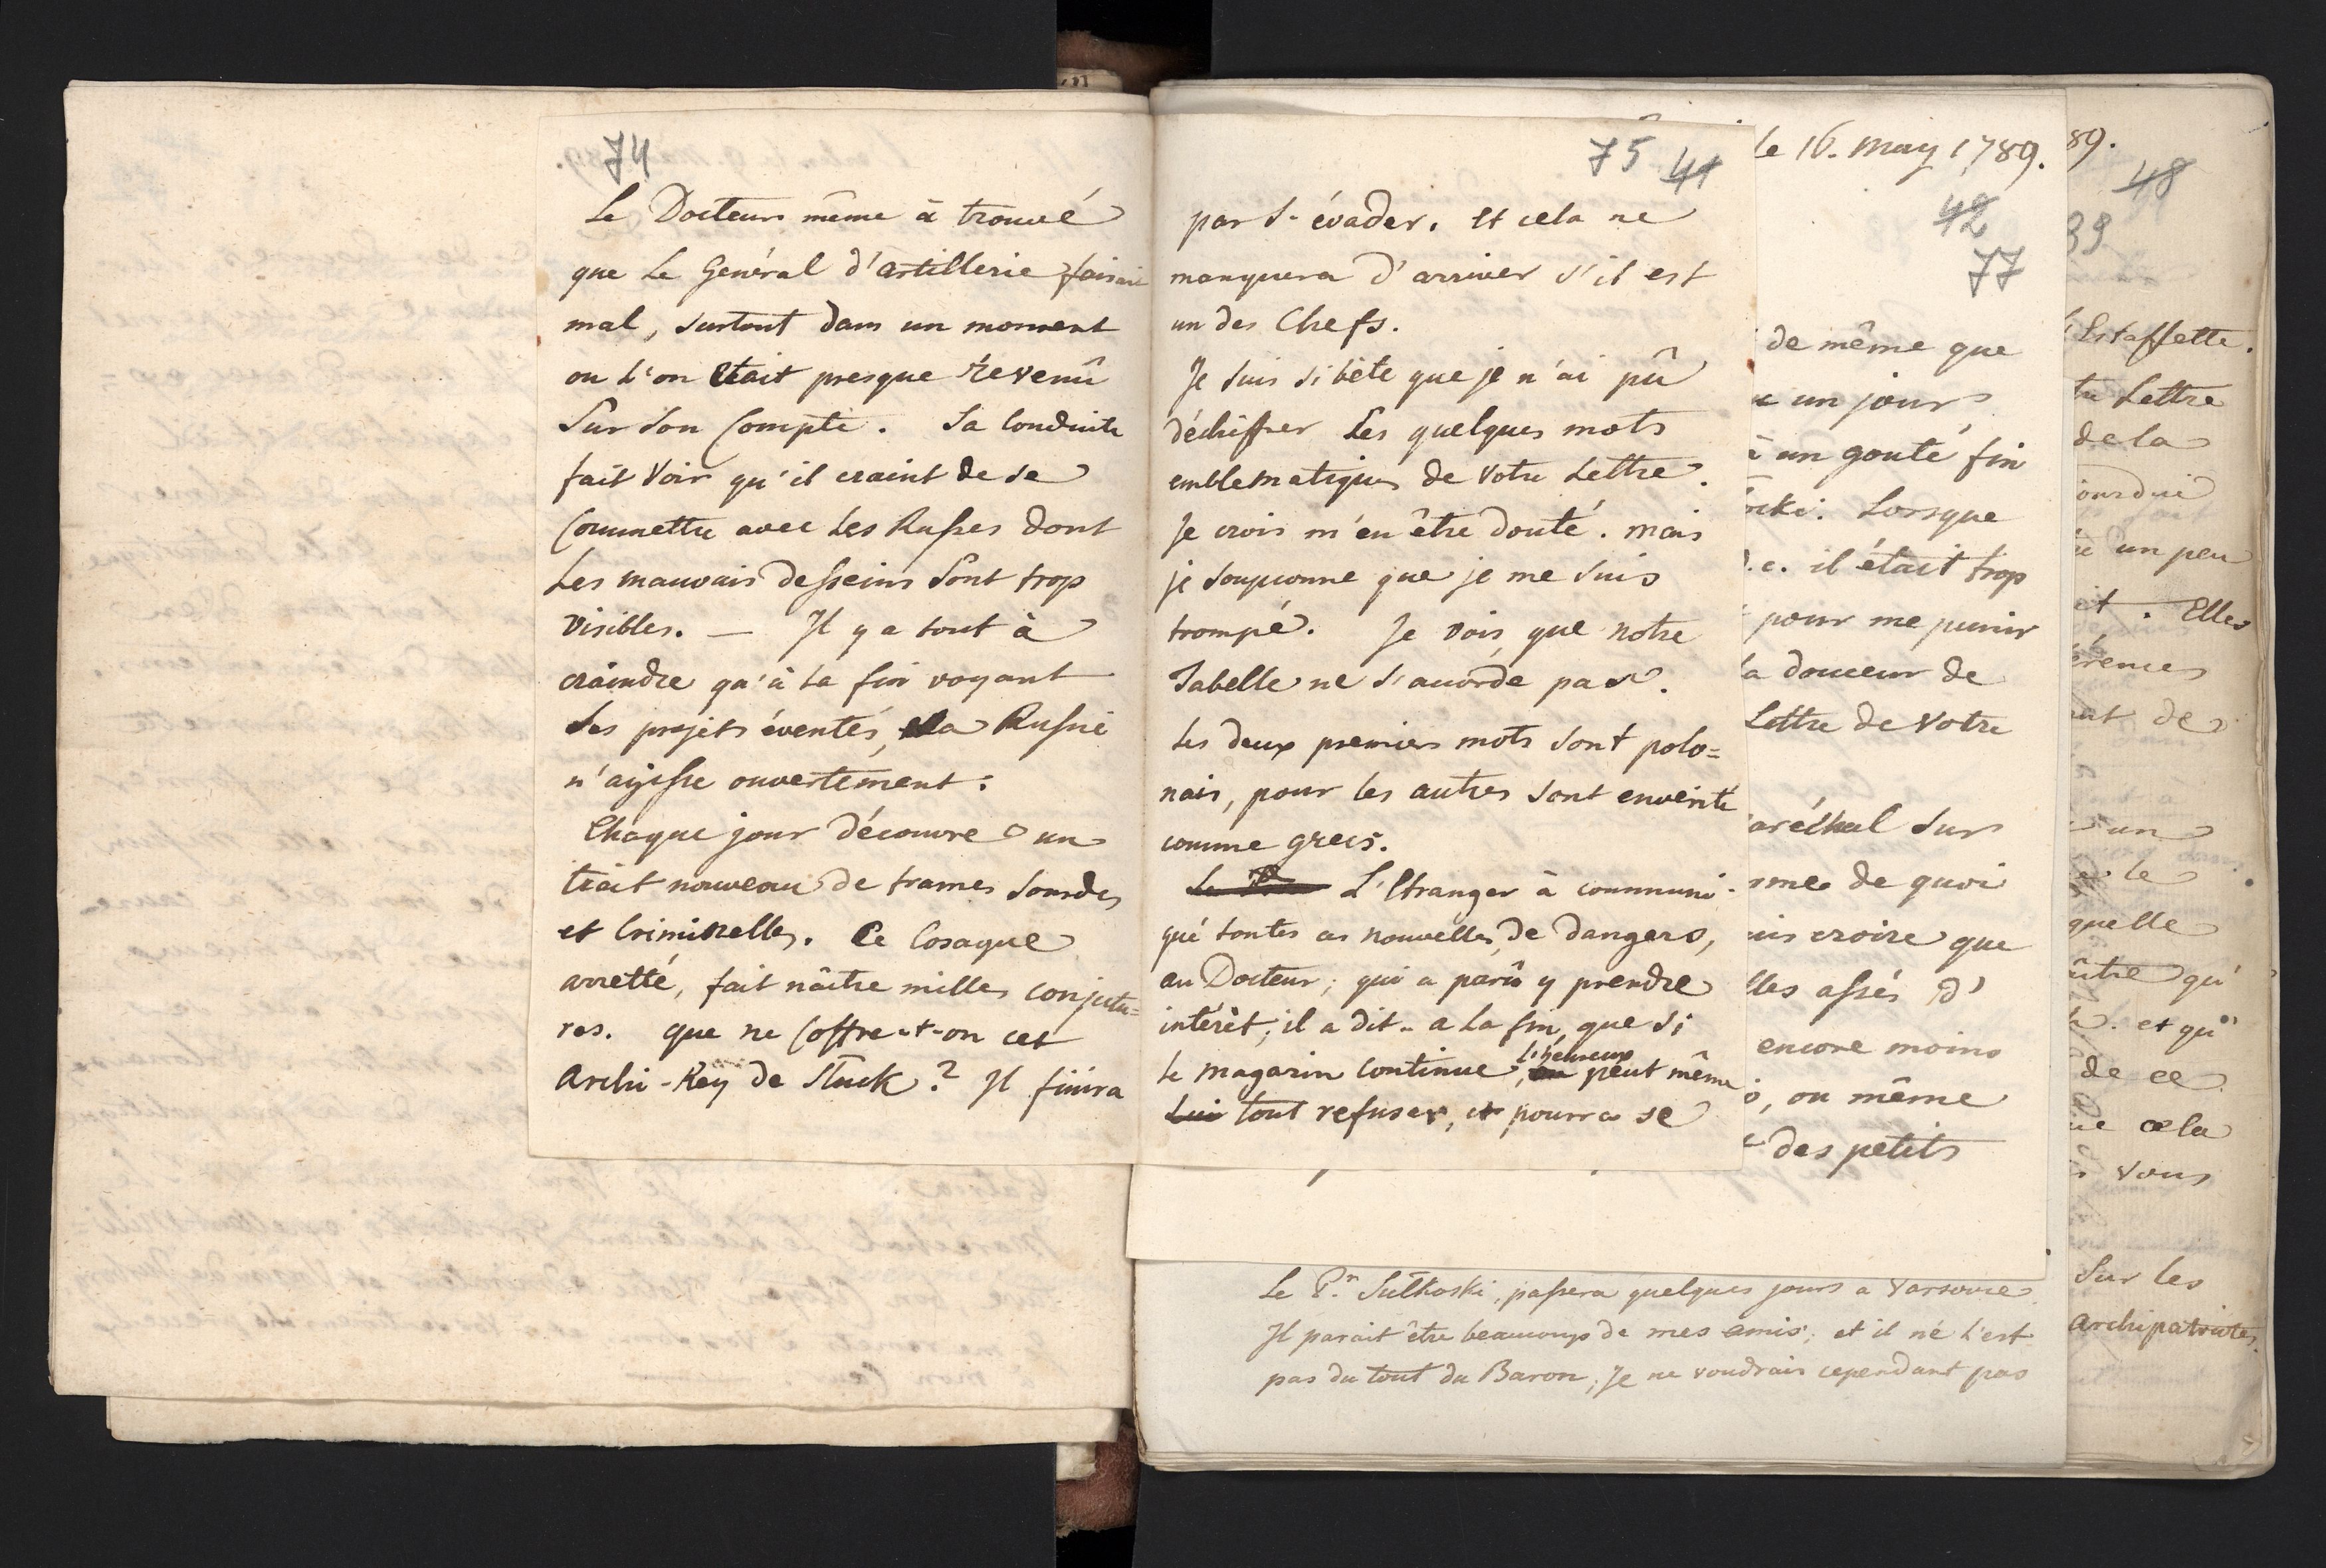 74
Le Docteur même à trouvé
que Le Général d'artillerie faisait
mal, surtout dans un moment
ou L'on était presque révenû
Sur Son Compte. Sa Conduite
fait Voir qu'il craint de se
Commettre avec Les Russes dont
Les mauvais desseins Sont trop
Visibles. — Il y a tout à
craindre qu'à La fin voyant
Ses projets éventés, la Russie
n'agisse ouvertement.
Chaque jour découvre un
trait nouveau de trames Sourdes
et Criminelles. Ce Cosaque
arretté, fait nâitre milles conjectu=
res. que ne Coffre-t-on cet
Archi-Rey de Sluck? Il finira
75 41
par S'évader. et cela ne
manquera d'arriver s'il est
un des Chefs.
Je suis si bète que je n'ai pû
déchiffrer Les quelques mots
emblematiques de Votre Lettre.
Je crois m'en être douté. mais
je soupconne que je me suis
trompé. Je vois, que notre
Tabelle ne s'acorde pas.
Les deux premiers mots sont polo=
nais, pour les autres sont en verité
comme grecs.
L'Etranger à communi-
qué toutes ces nouvelles, de dangers,
au Docteur; qui a parû y prendre
intérèt; il a dit - a La fin, que si
Le magazin Continue, l'heureux peut même
Lui tout refuser, et pourra se
le 16. May 1789.
42
77
de même que
un jour
à un gouté fin
cki. Lorsque
.c. il était trop
pour me punir
la douceur de
Lettre de Votre
aréchal sur
de quoi
uis croire que
lles assés d'
encore moins
ou même
des petits
Le P.n Sulkoski, passera quelques jours a Varsovie.
Il parait être beaucoup de mes amis; et il né L'est
pas du tout du Baron; Je ne voudrais cependant pas
89.
48
39
Estaffette.
Lettre
de la
ourdui
un peu
it. Elles
érences
de
un
le
quelle
âitre qu'
et qu'
de ce
cela
vous
Sur les
Archipatriotes.